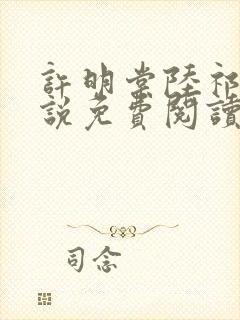 許明棠陸祁
說免費閱讀
司念